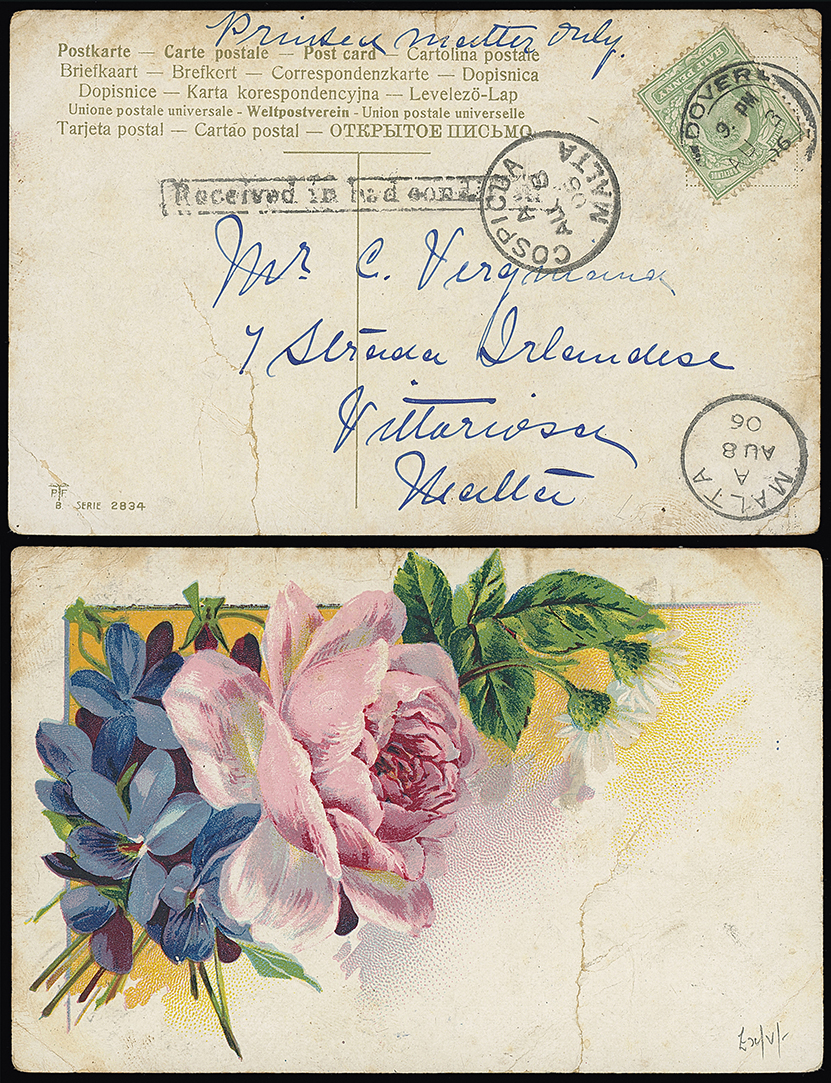 Printed matter only.
Postkarte — Carte postale — Post card — Cartolina postale
Briefkaart — Brefkort — Correspondenzkarte — Dopisnica
Dopisnice — Karta korespondencyjna — Levelező-Lap
Unione postale universale - Weltpostverein - Union postale universelle
Tarjeta postal — Cartão postal — ОТКРЫТОЕ ПИСЬМО.
HALF PENNY
DOVER
9. PM
AU 3
06
Received in bad cond
COSPICUA MALTA
AU
06
Mr. C.
7 Strada Irlandese
Vittoriosa
Malta
MALTA
A
AU 8
06
PF
B SERIE 2834